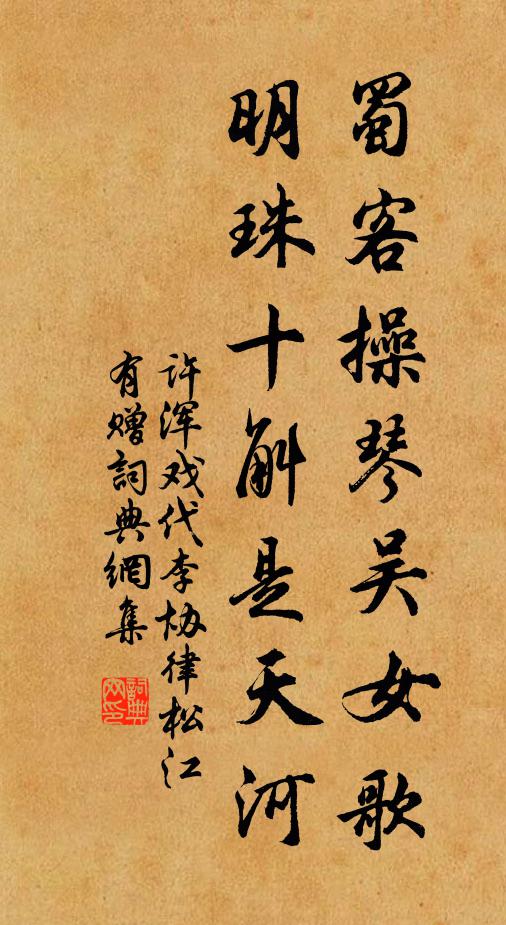 蜀客操琴吴女歌
明珠十斛是天河
许浑戏代李协律松江
有赠詞典網集
詞典網印